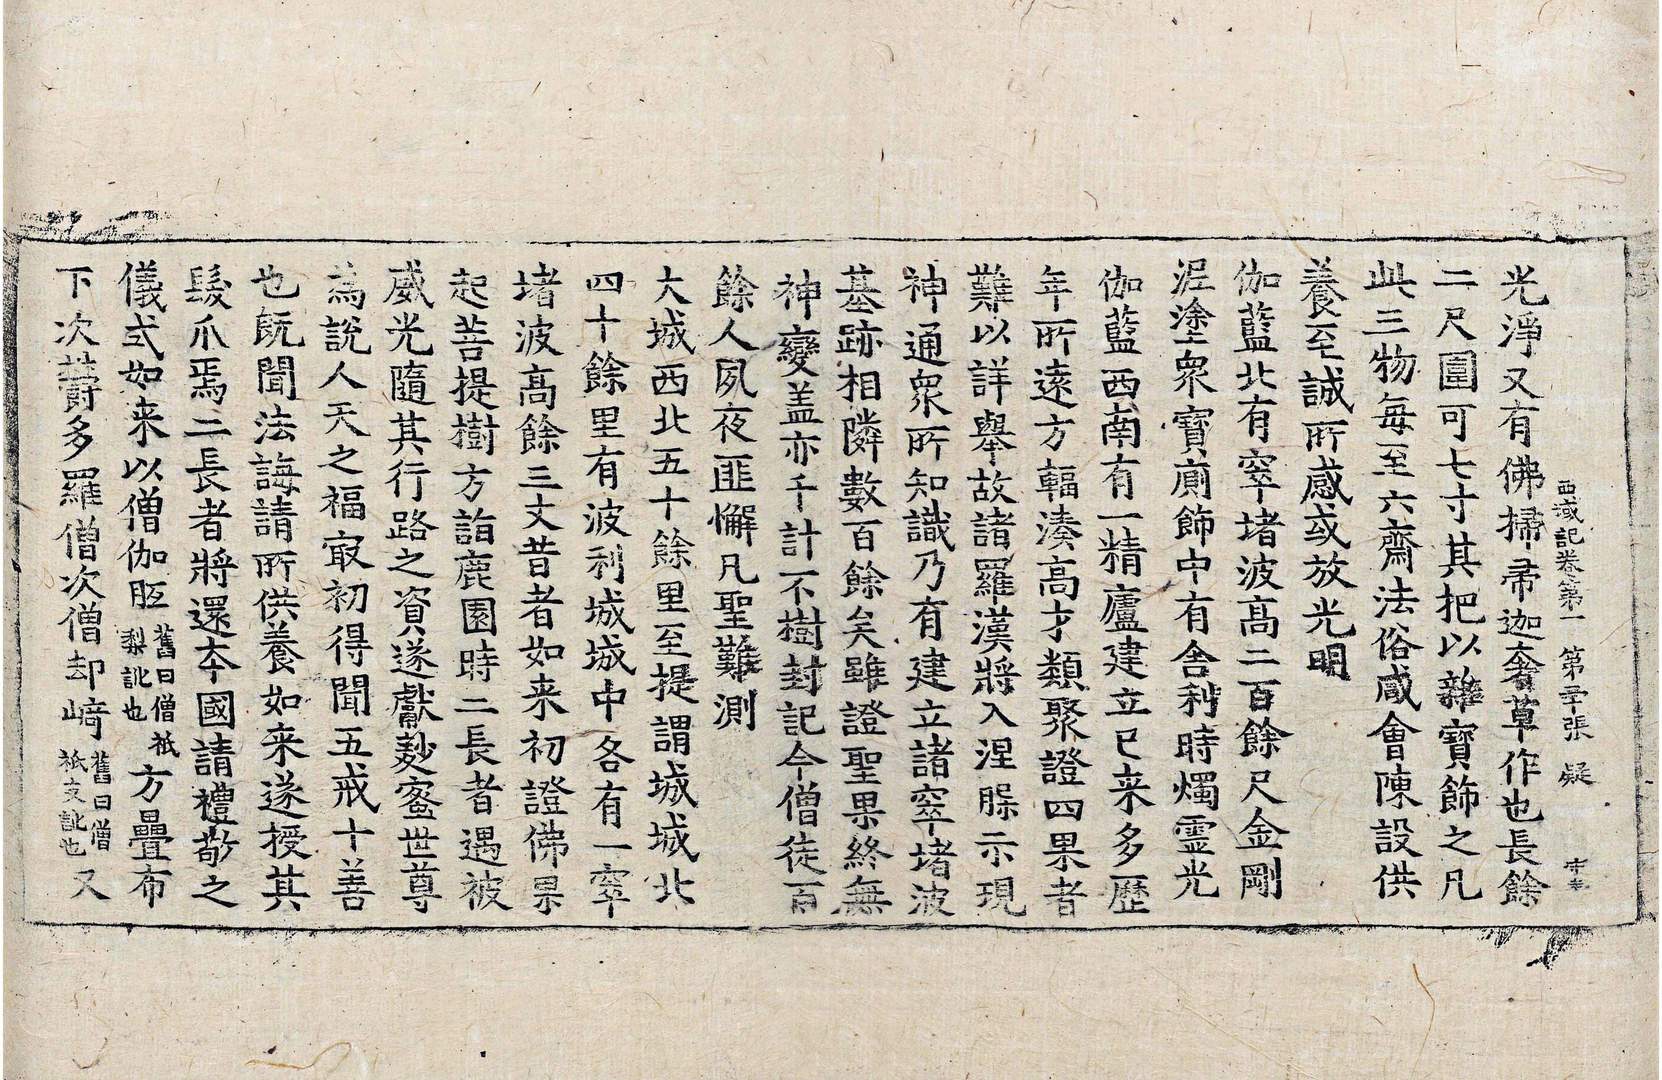 西域記卷第一 第二十張 疑
光淨又有佛掃帚迦奢草作也長餘
二尺圍可七寸其把以雜寶飾之凡
此三物每至六齋法俗咸會陳設供
養至誠所感或放光明
伽藍北有窣堵波高二百餘尺金剛
泥塗眾寶廁飾中有舍利時燭靈光
伽藍西南有一精廬建立已来多歷
年所遠方輻湊高才類聚證四果者
難以詳舉故諸羅漢將入涅槃示現
神通眾所知識乃有建立諸窣堵波
基跡相隣數百餘矣雖證聖果終無
神變盖亦千計不樹封記今僧徒百
餘人夙夜匪懈凡聖難測
大城西北五十餘里至提謂城城北
四十餘里有波利城城中各有一窣
堵波高餘三丈昔者如来初證佛果
起菩提樹方詣鹿園時二長者遇被
威光隨其行路之資遂獻麨蜜世尊
為說人天之福㝡初得聞五戒十善
也旣聞法誨請所供養如来遂授其
髮爪焉二長者將還本國請禮敬之
儀式如来以僧伽胝 舊曰僧祇梨訛也 方疊布
下次鬱多羅僧次僧却崎 舊曰僧祇支訛也 又